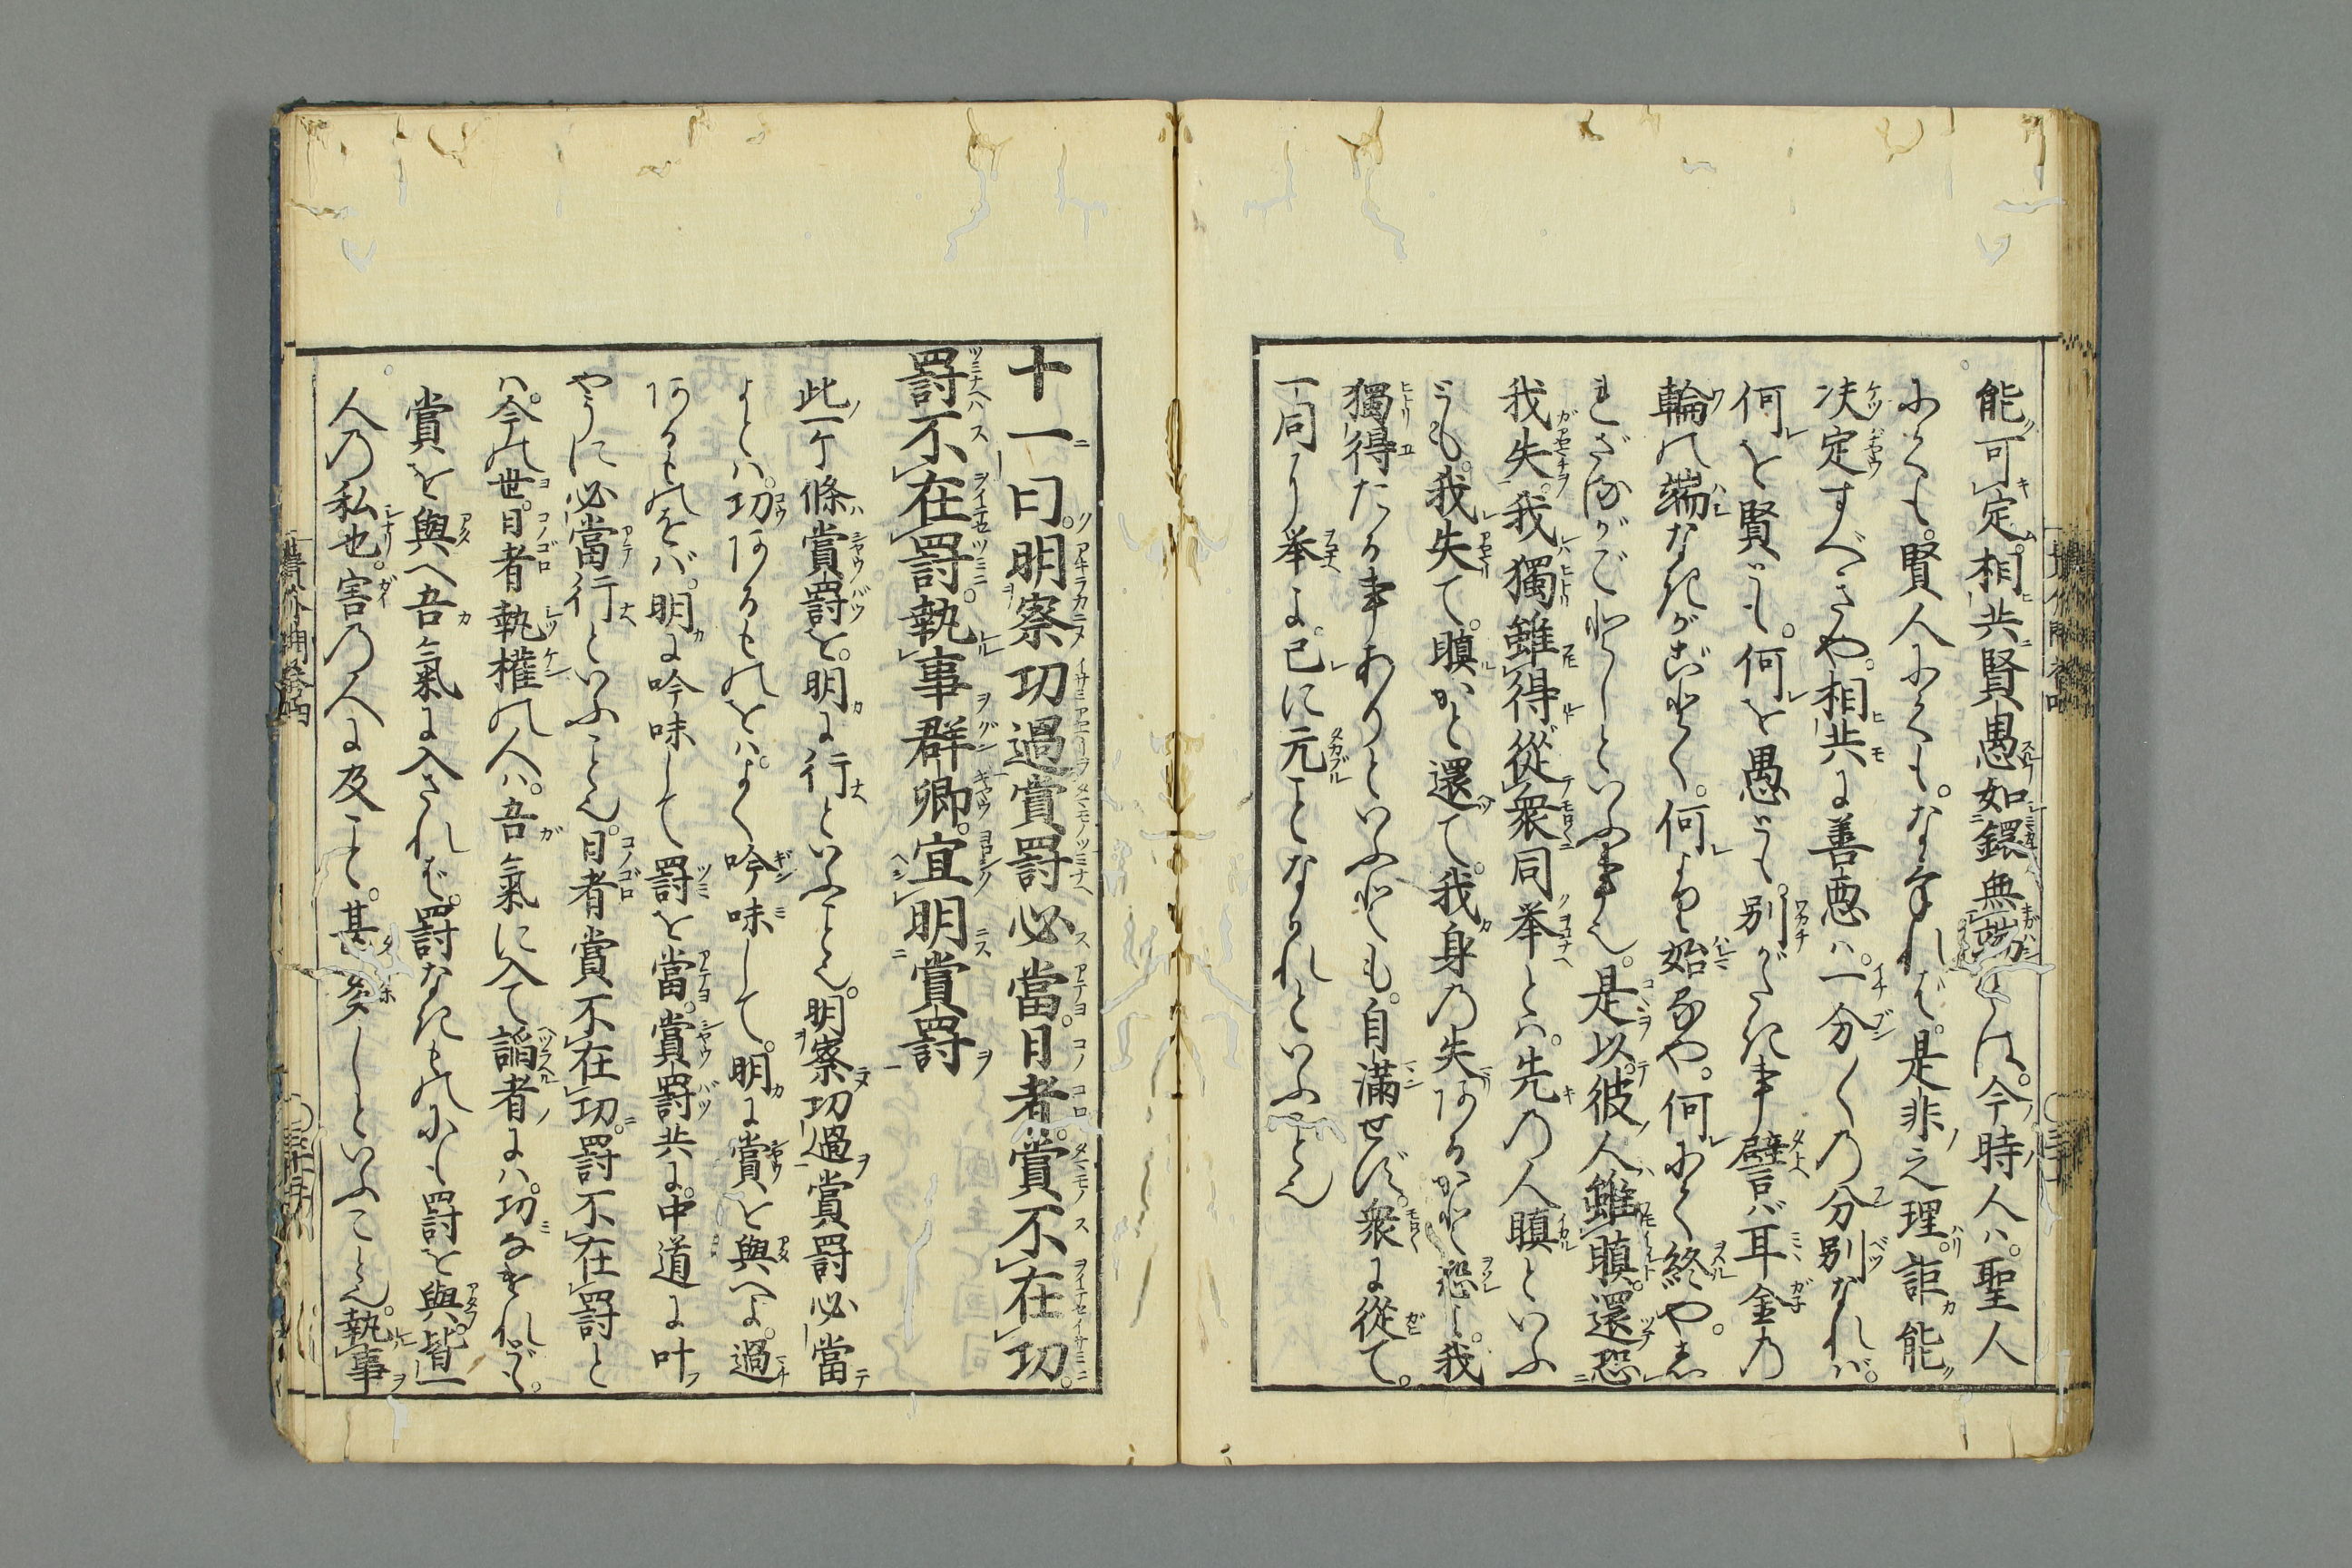 能可定相共賢愚如鐶無端とは。今時人ハ。聖人
にくも。賢人にくも。なければ。是非之理。詎能
决定すべきや。相共に善悪ハ。一分〳〵の分別なれバ。
何を賢とも。何を愚とも。別がたき事譬バ耳金の
輪の端なきがごとく。何より始るや。何にて終や。しれ
ざるがごとしといふ事也。是以。彼人雖瞋。還恐
我失。我獨雖得從衆同挙とハ。先の人瞋といふ
とも。我失て。瞋かと還て。我身の失あるかと恐し。我
獨得たる事ありといふとも。自滿せず。衆に從て。
一同に挙よ。己に元ことなかれといふこと也
十一曰。明察功過賞罰必當。日者。賞不在功。
罰不在罰。執事群卿。宜明賞罰
此一ケ條賞罰を。明に行といふこと也。明察功過賞罰必當
よとハ。功あるものをハ。よく吟味して。明に賞を與へよ。過
あるものをバ。明に吟味して罰を當。賞罰共に。中道に叶
やうに必當行といふこと也。日者賞不在功。罰不在罰と
ハ。今の世。日者執權の人ハ。吾氣に入て諂者にハ。功なけれども。
賞を與へ吾氣に入ざれば。罰なきものにも罰を與。皆一
人の私也。害の人に及こと。甚多しといふこと也。執事